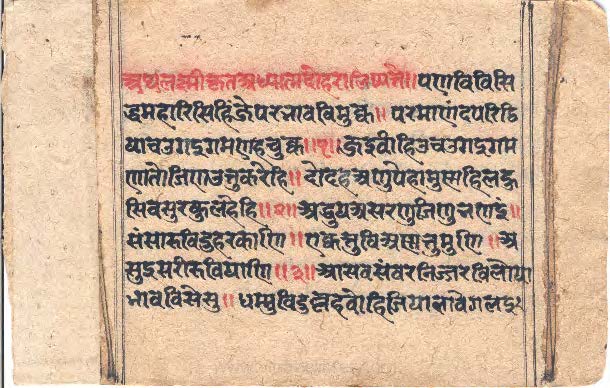 अथलक्ष्मीकृतअध्यात्मदोहराजिष्यते॥ पणविविसि
द्धमहारिसिहिंजेपरभावविमुक्क॥ परमाणंदपरिट्ठि
याचउगइगमणहचुक्क॥१॥ जइवीहिउचउगइगम
णातोजिणउत्तुकरेहि॥ दोदहअणुपेहामुणहिलहु
सिवसुरकुलहेहि॥२॥ अद्धुयअसरणुजिणुभणइं॥
संसारुविदुहरकाणि॥ एकत्तुविअणत्तुमुणि॥अ
सुइसरीरुवियाणि॥३॥ आसवसंवरनिज्जरविलोया
भावविसेसु॥ धम्मुविदुल्लहवोहिजियाभावेगलइ